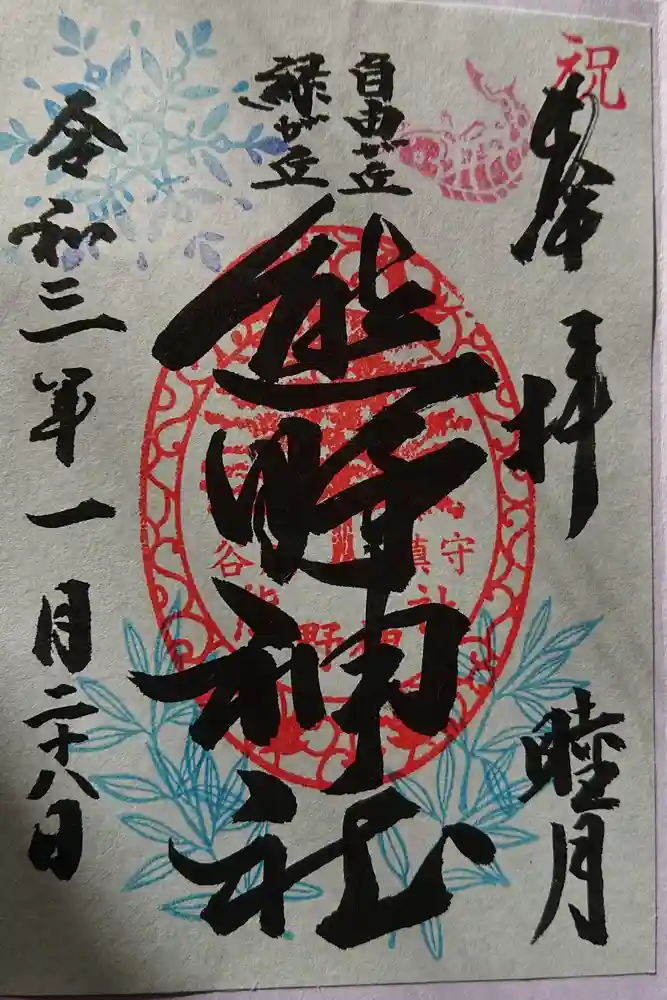 祝
奉拝
睦月
自由が丘
緑が丘
熊野神社
守
鎮
谷
熊野神社
令和三年一月二十八日